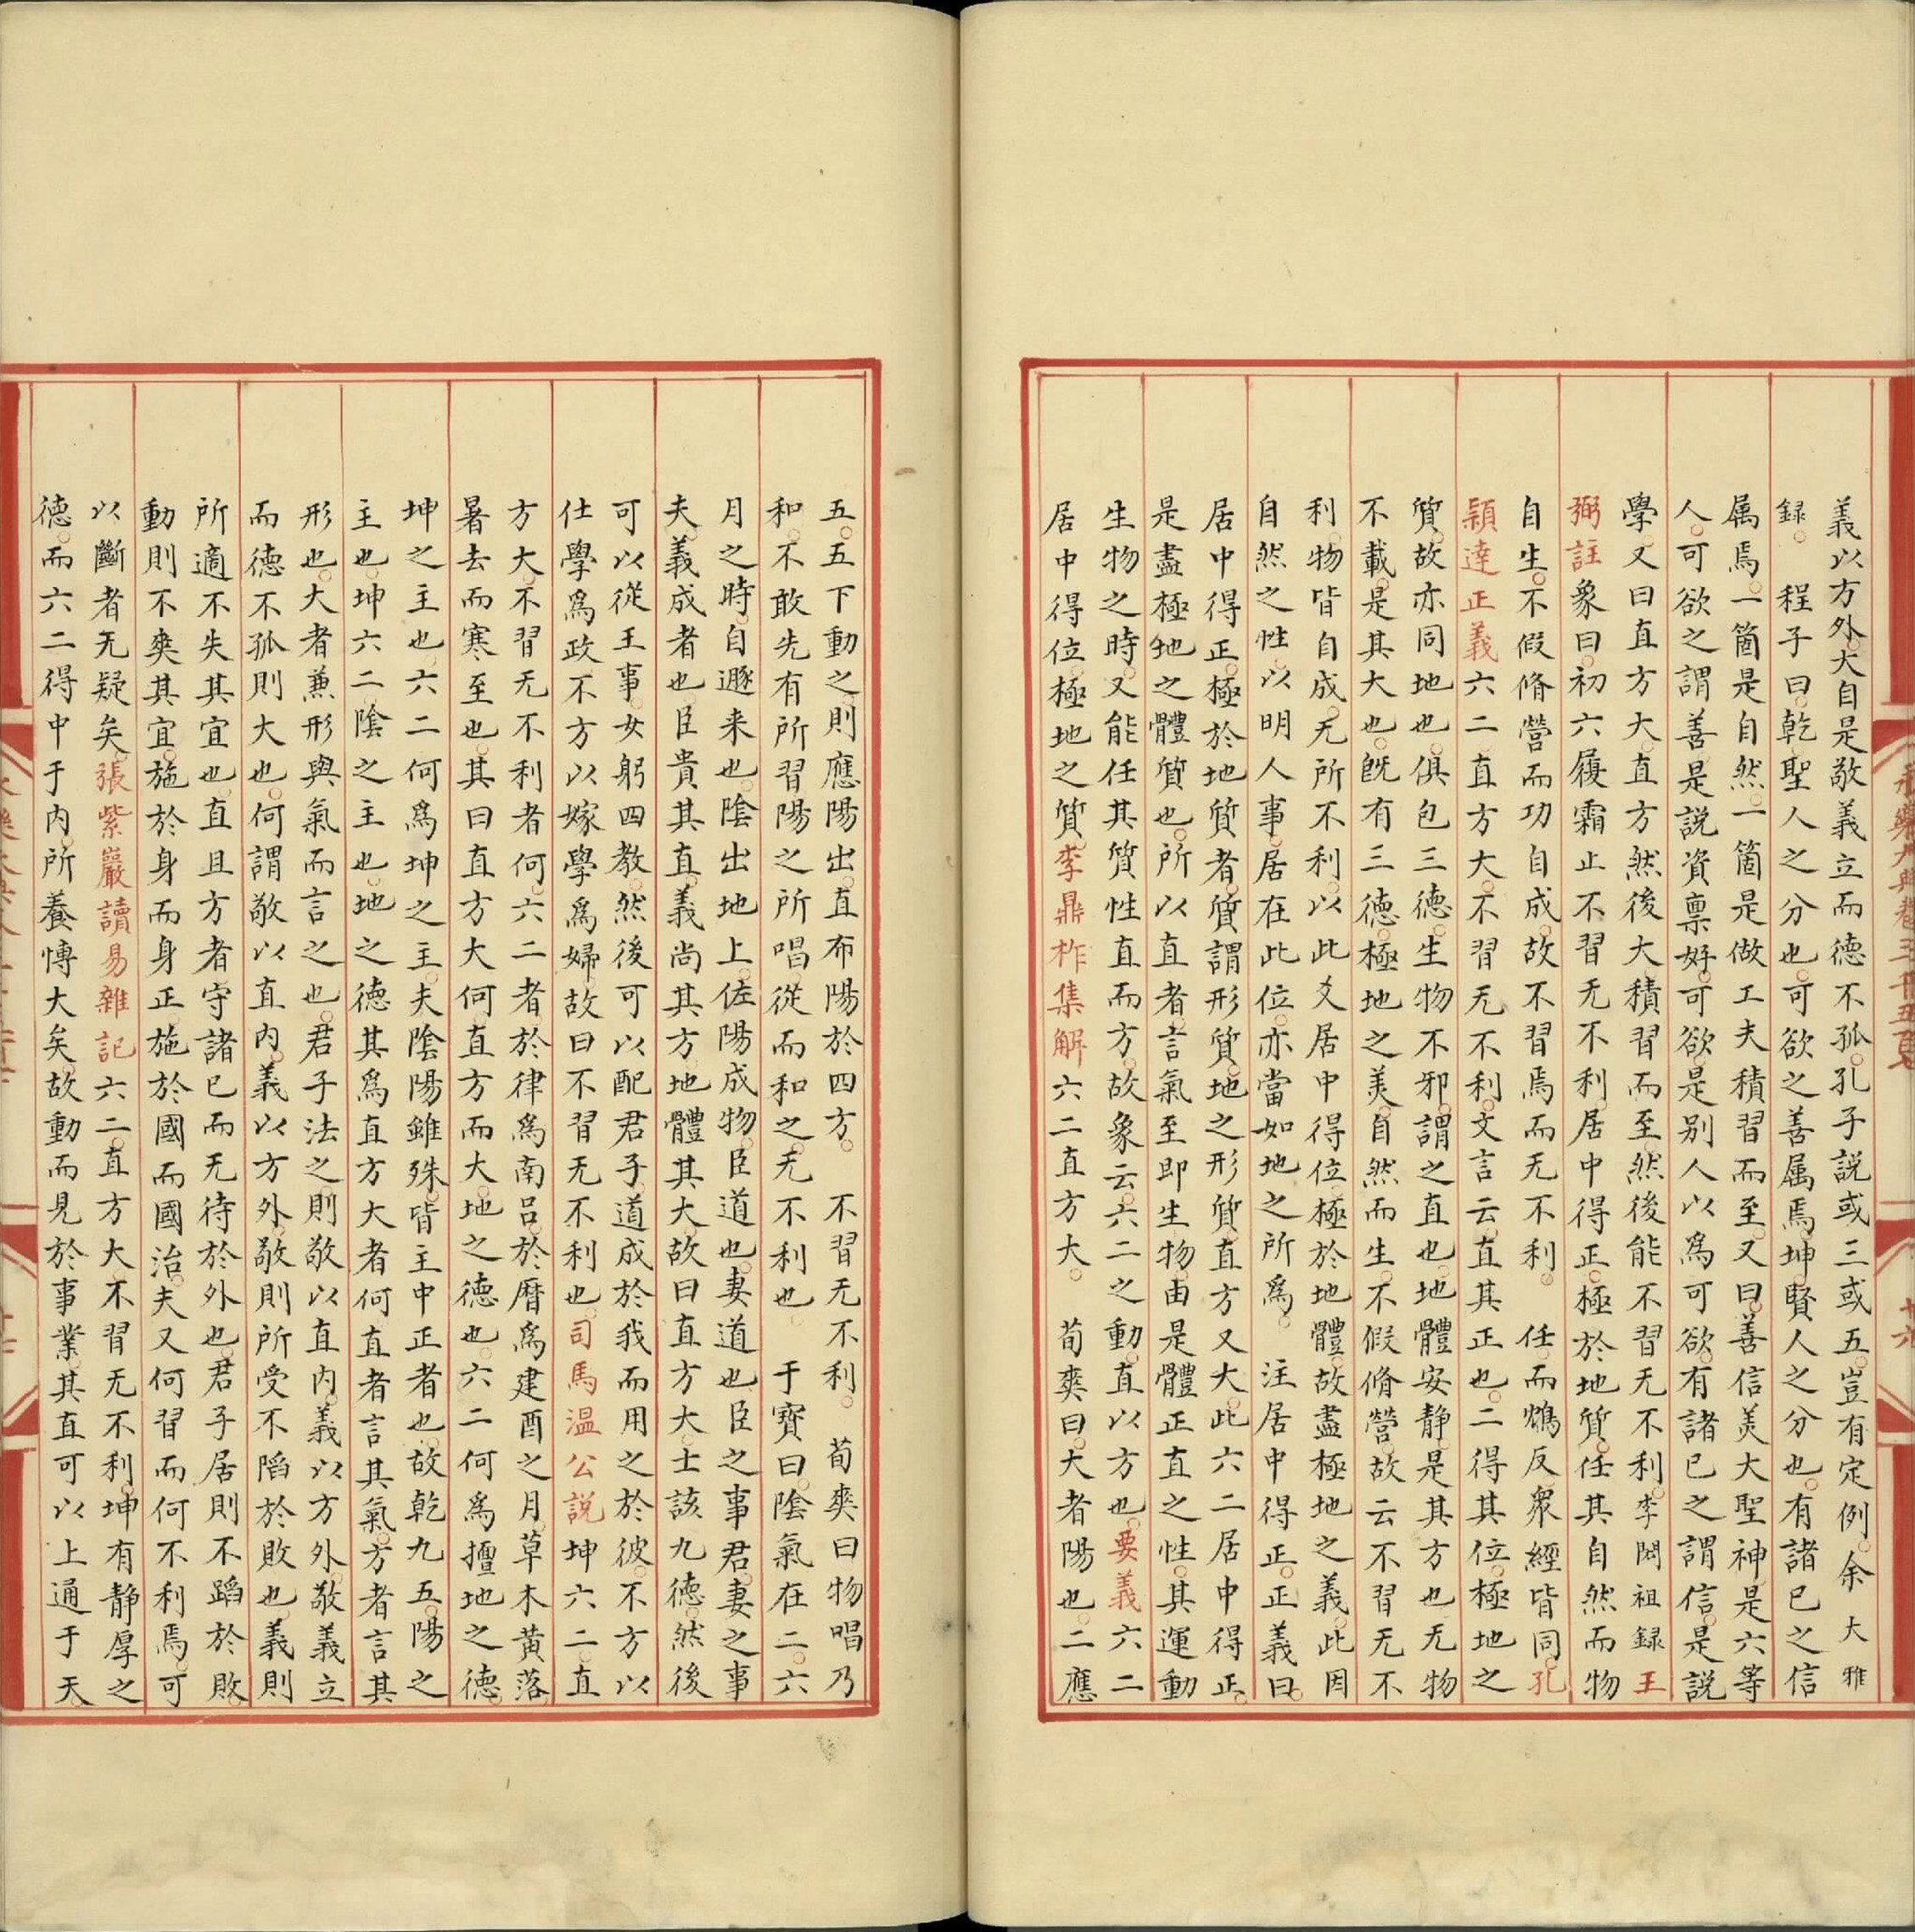 義以方外大自是敬義立而德不孤孔子説或三或五豈有定例余大雅
録程子曰乾聖人之分也可欲之善属焉坤賢人之分也有諸已之信
属焉一箇是自然一箇是做工夫積習而至又曰善信美大聖神是六等
人可欲之謂善是説資禀好可欲是别人以為可欲有諸已之謂信是説
學又曰直方大直方然後大積習而至然後能不習无不利李閎祖録王
弼註象曰初六履霜止不習无不利居中得正極於地質任其自然而物
自生不假脩營而功自成故不習焉而无不利任而鴆反衆經皆同孔
頴達正義六二直方大不習无不利文言云直其正也二得其位極地之
質故亦同地也俱包三德生物不邪謂之直也地體安静是其方也无物
不載是其大也旣有三德極地之美自然而生不假脩營故云不習无不
利物皆自成无所不利以此爻居中得位極於地體故盡極地之義此因
自然之性以明人事居在此位亦當如地之所為注居中得正正義曰
居中得正極於地質者質謂形質地之形質直方又大此六二居中得正
是盡極地之體質也所以直者言氣至即生物由是體正直之性其運動
生物之時又能任其質性直而方故象云六二之動直以方也要義六二
居中得位極地之質李鼎柞集解六二直方大荀爽曰大者陽也二應
五五下動之則應陽出直布陽於四方不習无不利荀爽曰物唱乃
和不敢先有所習陽之所唱從而和之无不利也于寳曰陰氣在二六
月之時自遯来也陰出地上佐陽成物臣道也妻道也臣之事君妻之事
夫義成者也臣貴其直義尚其方地體其大故曰直方大士該九德然後
可以從王事女躬四教然後可以配君子道成於我而用之於彼不方以
仕學為政不方以嫁學為婦故曰不習无不利也司馬温公説坤六二直
方大不習无不利者何六二者於律為南吕於曆為建酉之月草木黄落
暑去而寒至也其曰直方大何直方而大地之德也六二何為擅地之德
坤之主也六二何為坤之主夫陰陽雖殊皆主中正者也故乾九五陽之
主也坤六二陰之主也地之德其為直方大者何直者言其氣方者言其
形也大者兼形與氣而言之也君子法之則敬以直内義以方外敬義立
而德不孤則大也何謂敬以直内義以方外敬則所受不䧟於敗也義則
所適不失其宜也直且方者守諸已而无待於外也君子居則不蹈於敗
動則不爽其宜施於身而身正施於國而國治夫又何習而何不利焉可
以斷者无疑矣張紫巖讀易雜記六二直方大不習无不利坤有静厚之
德而六二得中于内所養慱大矣故動而見於事業其直可以上通于天